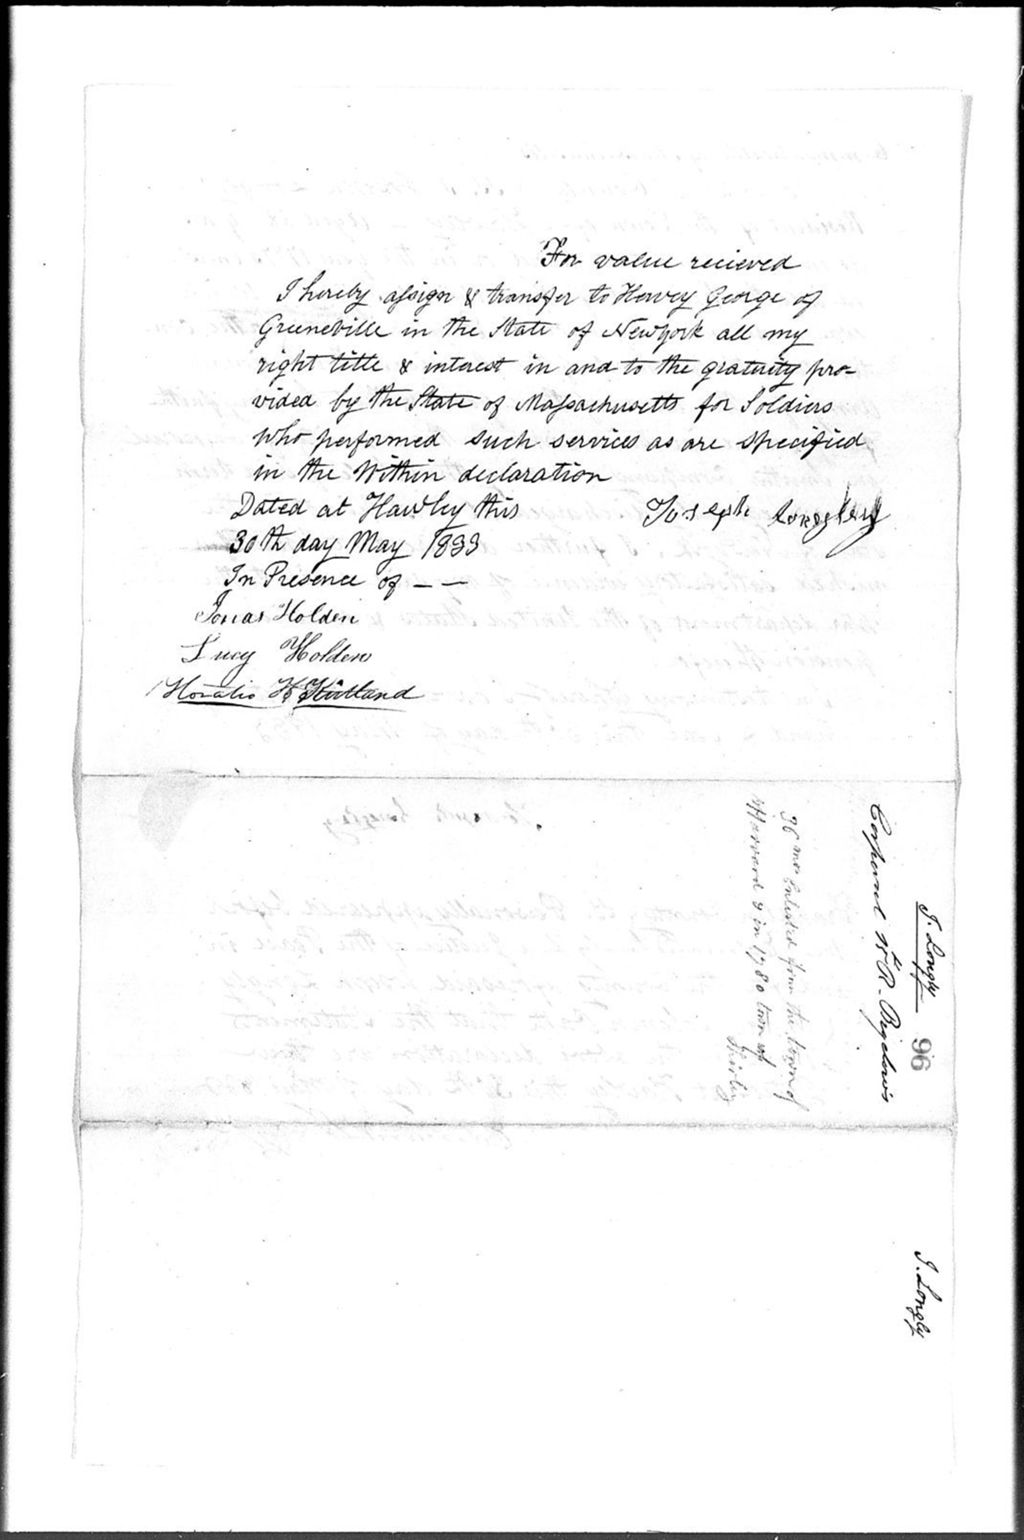 For value recieved
I hereby assign & transfer to Hervey George of
Greeneville in the State of Newyork all my
right title & interest in and to the gratuity pro=
vided by the State of Massachusetts for Soldiers
who performed such services as are specified
in the Within declaration
Dated at Hawley this
Joseph Longley
30th day May 1833
In Presence of — —
Jonas Holden
Lucy Holden
Horatio H Kirtland
J. Longly
96
Corporal in R. Bigelow's
36 mo. Enlisted from the town of
Harvard & in 1780 town of
Shirley
J. Longly